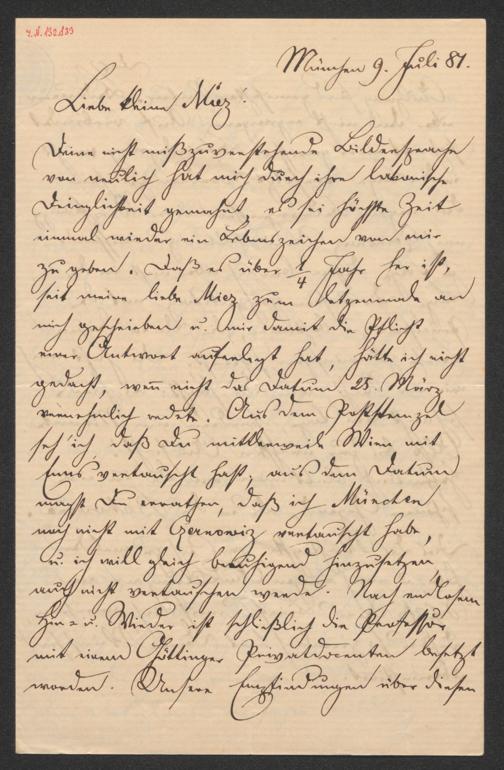 I.N. 152.133
München 9. Juli 81.
Liebe kleine Miez.
Deine nicht mißzuverstehende Bildersprache
von neulich hat mich durch ihre lakonische
Dringlichkeit gemahnt, es sei höchste Zeit
einmal wieder ein Lebenszeichen von mir
zu geben. Daß es über 1/4 Jahr her ist,
seit meine liebe Miez zum letzenmale an
mich geschrieben u. mir damit die Pflicht
einer Antwort auferlegt hat, hätte ich nicht
gedacht, wen̄ nicht das Datum 25. März
vernehmlich redete. Aus dem Poststempel
seh' ich, daß Du mittlerweile Wien mit
vertauscht hast; aus dem Datum
magst Du errathen, daß ich München
noch nicht mit Czernowiz vertauscht habe,
u. ich will gleich beruhigend hinzusetzen,
auch nicht vertauschen werde. Nach endlosem
Hin= u. Wieder ist schließlich die Professur
mit einem Göttinger Privatdocenten besetzt
worden. Unsere Empfindungen über diesen